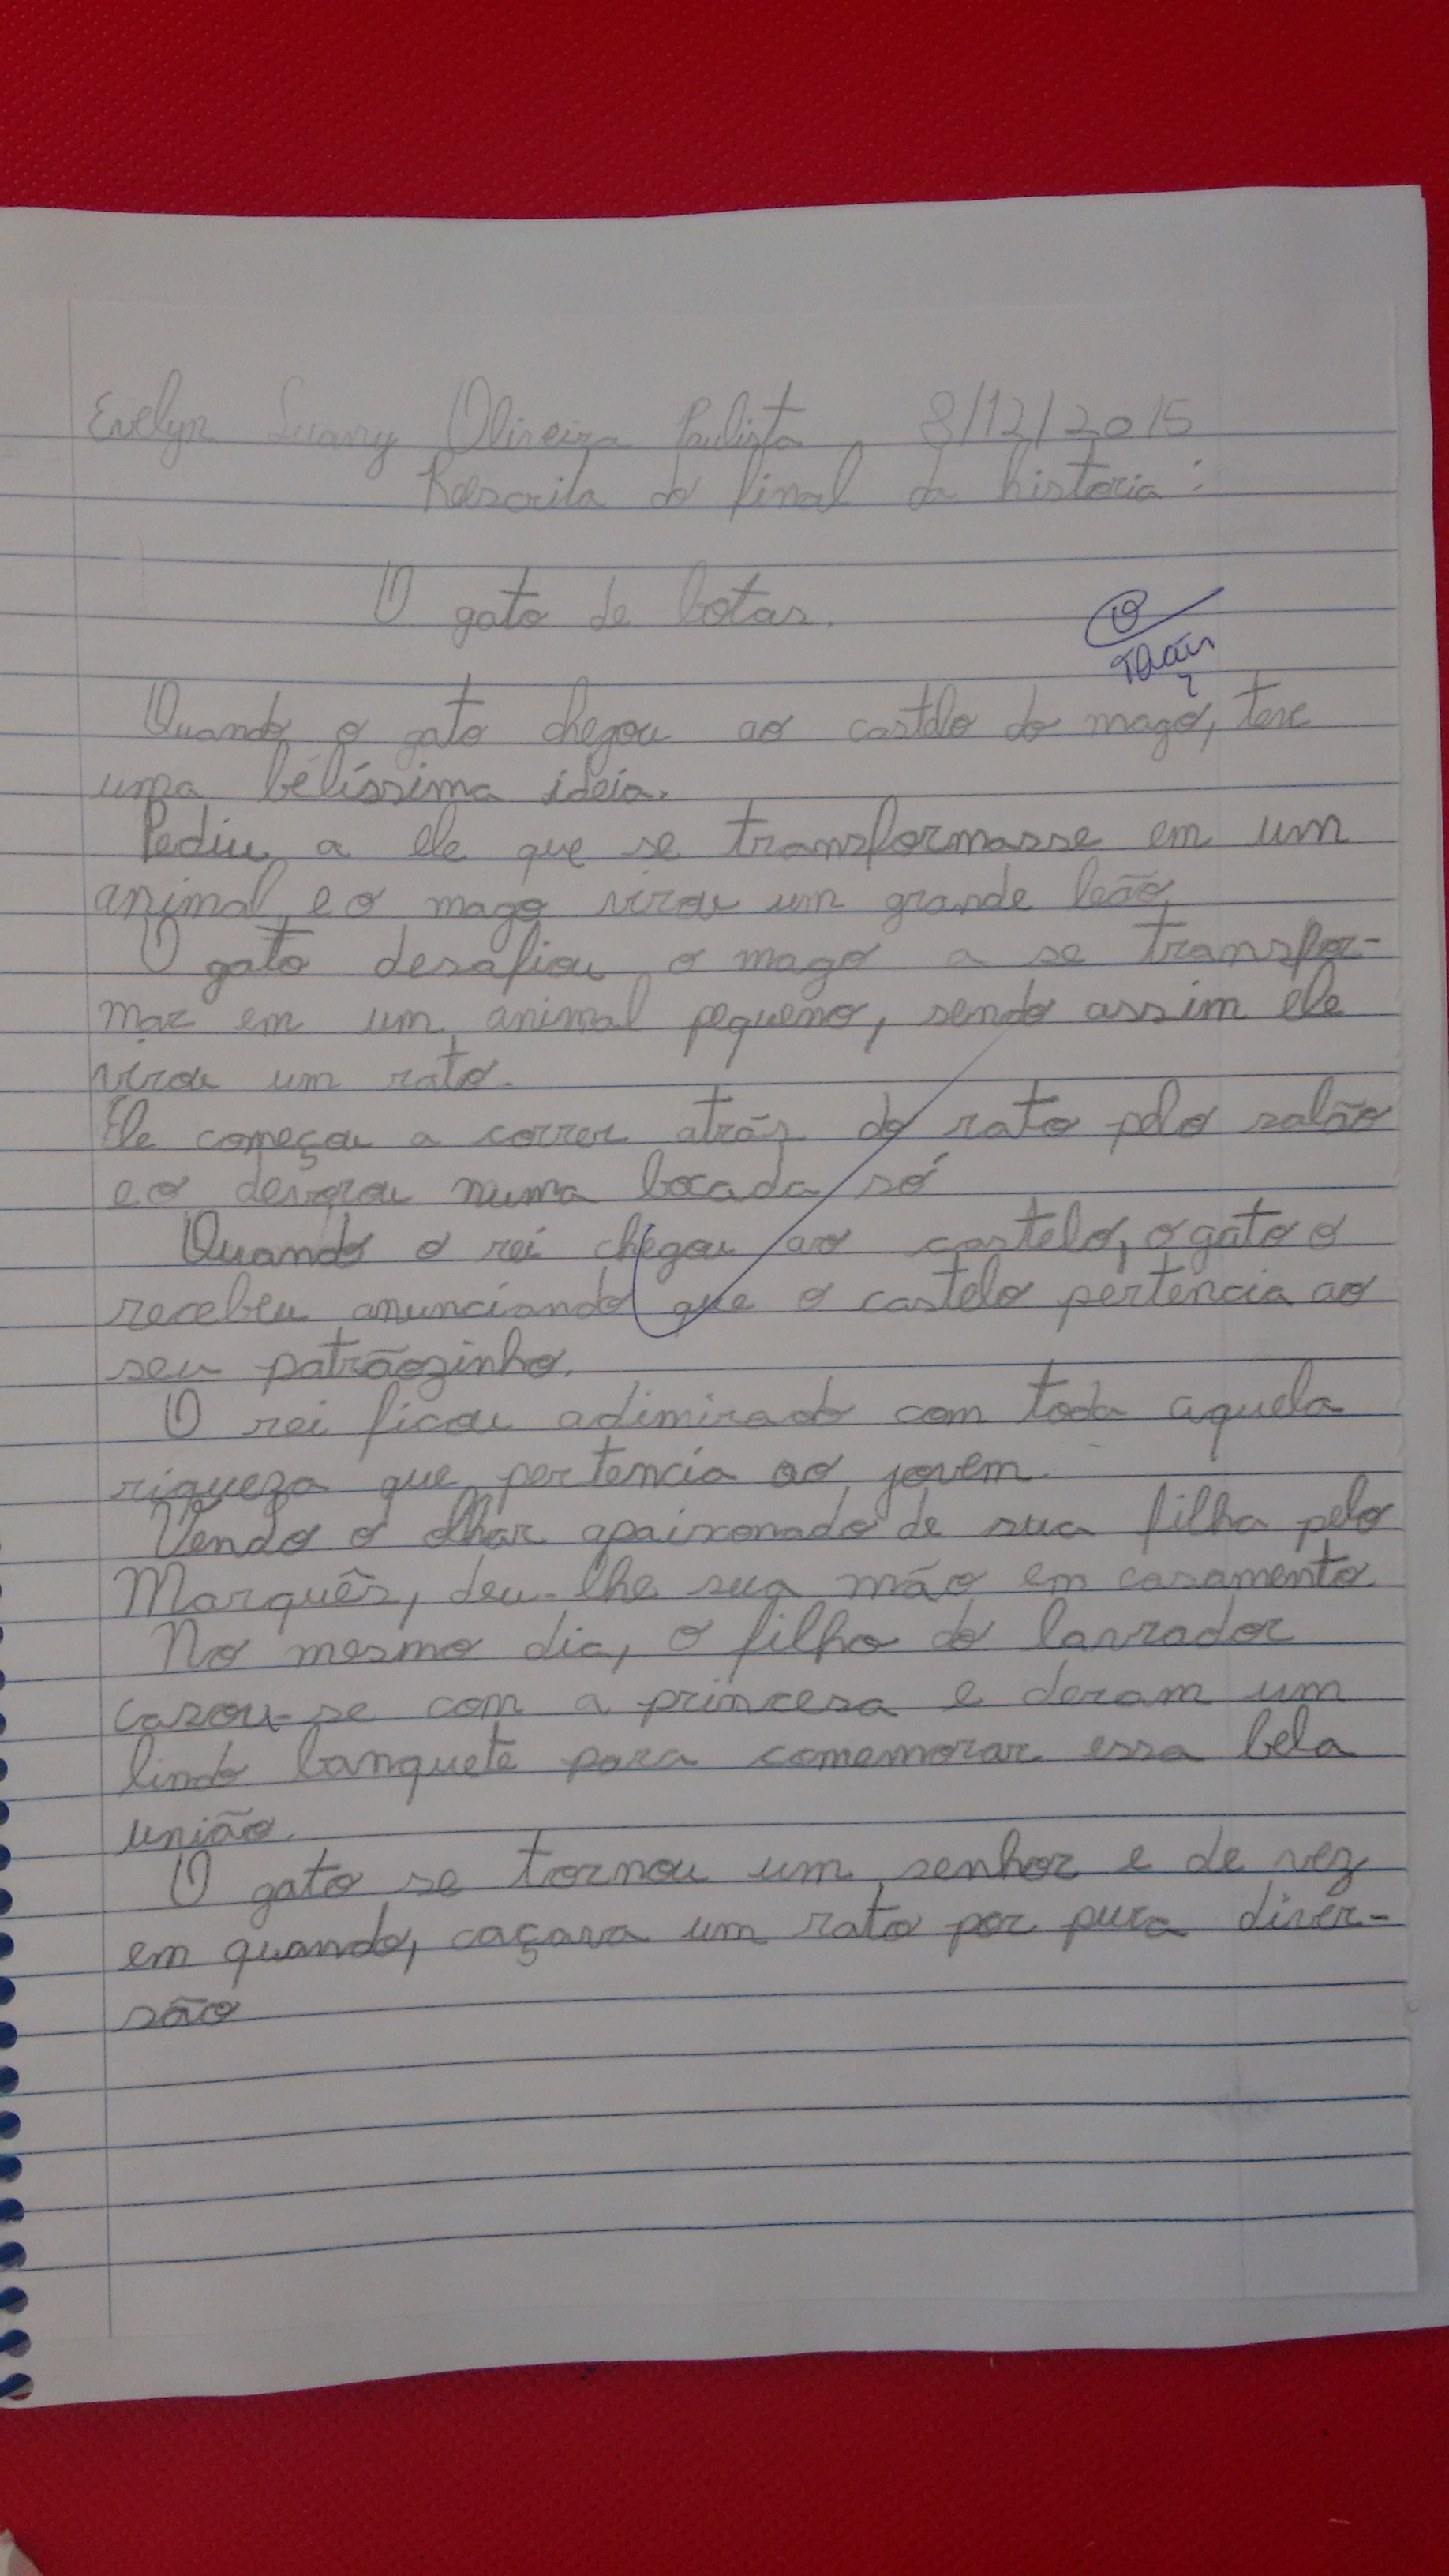 Evelyn Luany Oliveira Paulista, 8/12/2015
Reescrita do final da historia:
O gato de botas.
Quando o gato chegou ao castelo do mago, teve
uma bélíssima ideia.
Pediu a ele que se transformasse em um
animal e o mago virou um grande leão,
O gato desafiou o mago a se transfor-
mar em um animal pequeno, sendo assim ele
virou um rato.
Ele começou a correr atrás do rato pelo salão
e o devorou numa bocada só
Quando o rei chegou ao castelo, o gato o
recebeu anunciando que o castelo pertencia ao
seu patrãozinho.
O rei ficou adimirado com toda aquela
riqueza que pertencia ao jovem.
Vendo o olhar apaixonado de sua filha pelo
Marquês, deu-lhe sua mão em casamento.
No mesmo dia, o filho do lavrador
casou-se com a princesa e deram um
lindo banquete para comemorar essa bela
união.
O gato se tornou um senhor e de vez
em quando, caçava um rato por pura diver-
são